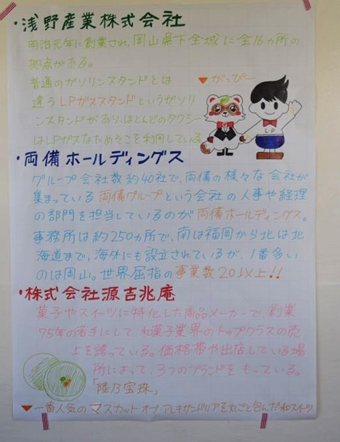 ・浅野産業株式会社
明治元年に創業され、岡山県下全域に全16ヵ所の
拠点がある。
普通のガソリンスタンドとは
違うLPガススタンドというガソリン
スタンドがあり、ほとんどのタクシー
はLPガスなためそこを利用している。
LP
・両備ホールディングス
グループ会社数約40社で、両備の様々な会社が
集まっている両備グループという会社の人事や経理
の部門を担当しているのが両備ホールディングス。
事務所は約250ヵ所で、南は福岡から北は北
海道まで、海外にも設立されているが、1番多い
のは岡山。世界屈指の事業数20以上!!
・株式会社源吉兆庵
菓子やスイーツに特化した商品メーカーで、創業
75年の若さにして、和菓子業界のトップクラスの売
上を誇っている。価格帯や出店している場
所によって、3つのブランドをもっている。
「陸乃宝珠」
一番人気のマスカットオブアレキサンドリアを丸ごと包んだ和スイーツ